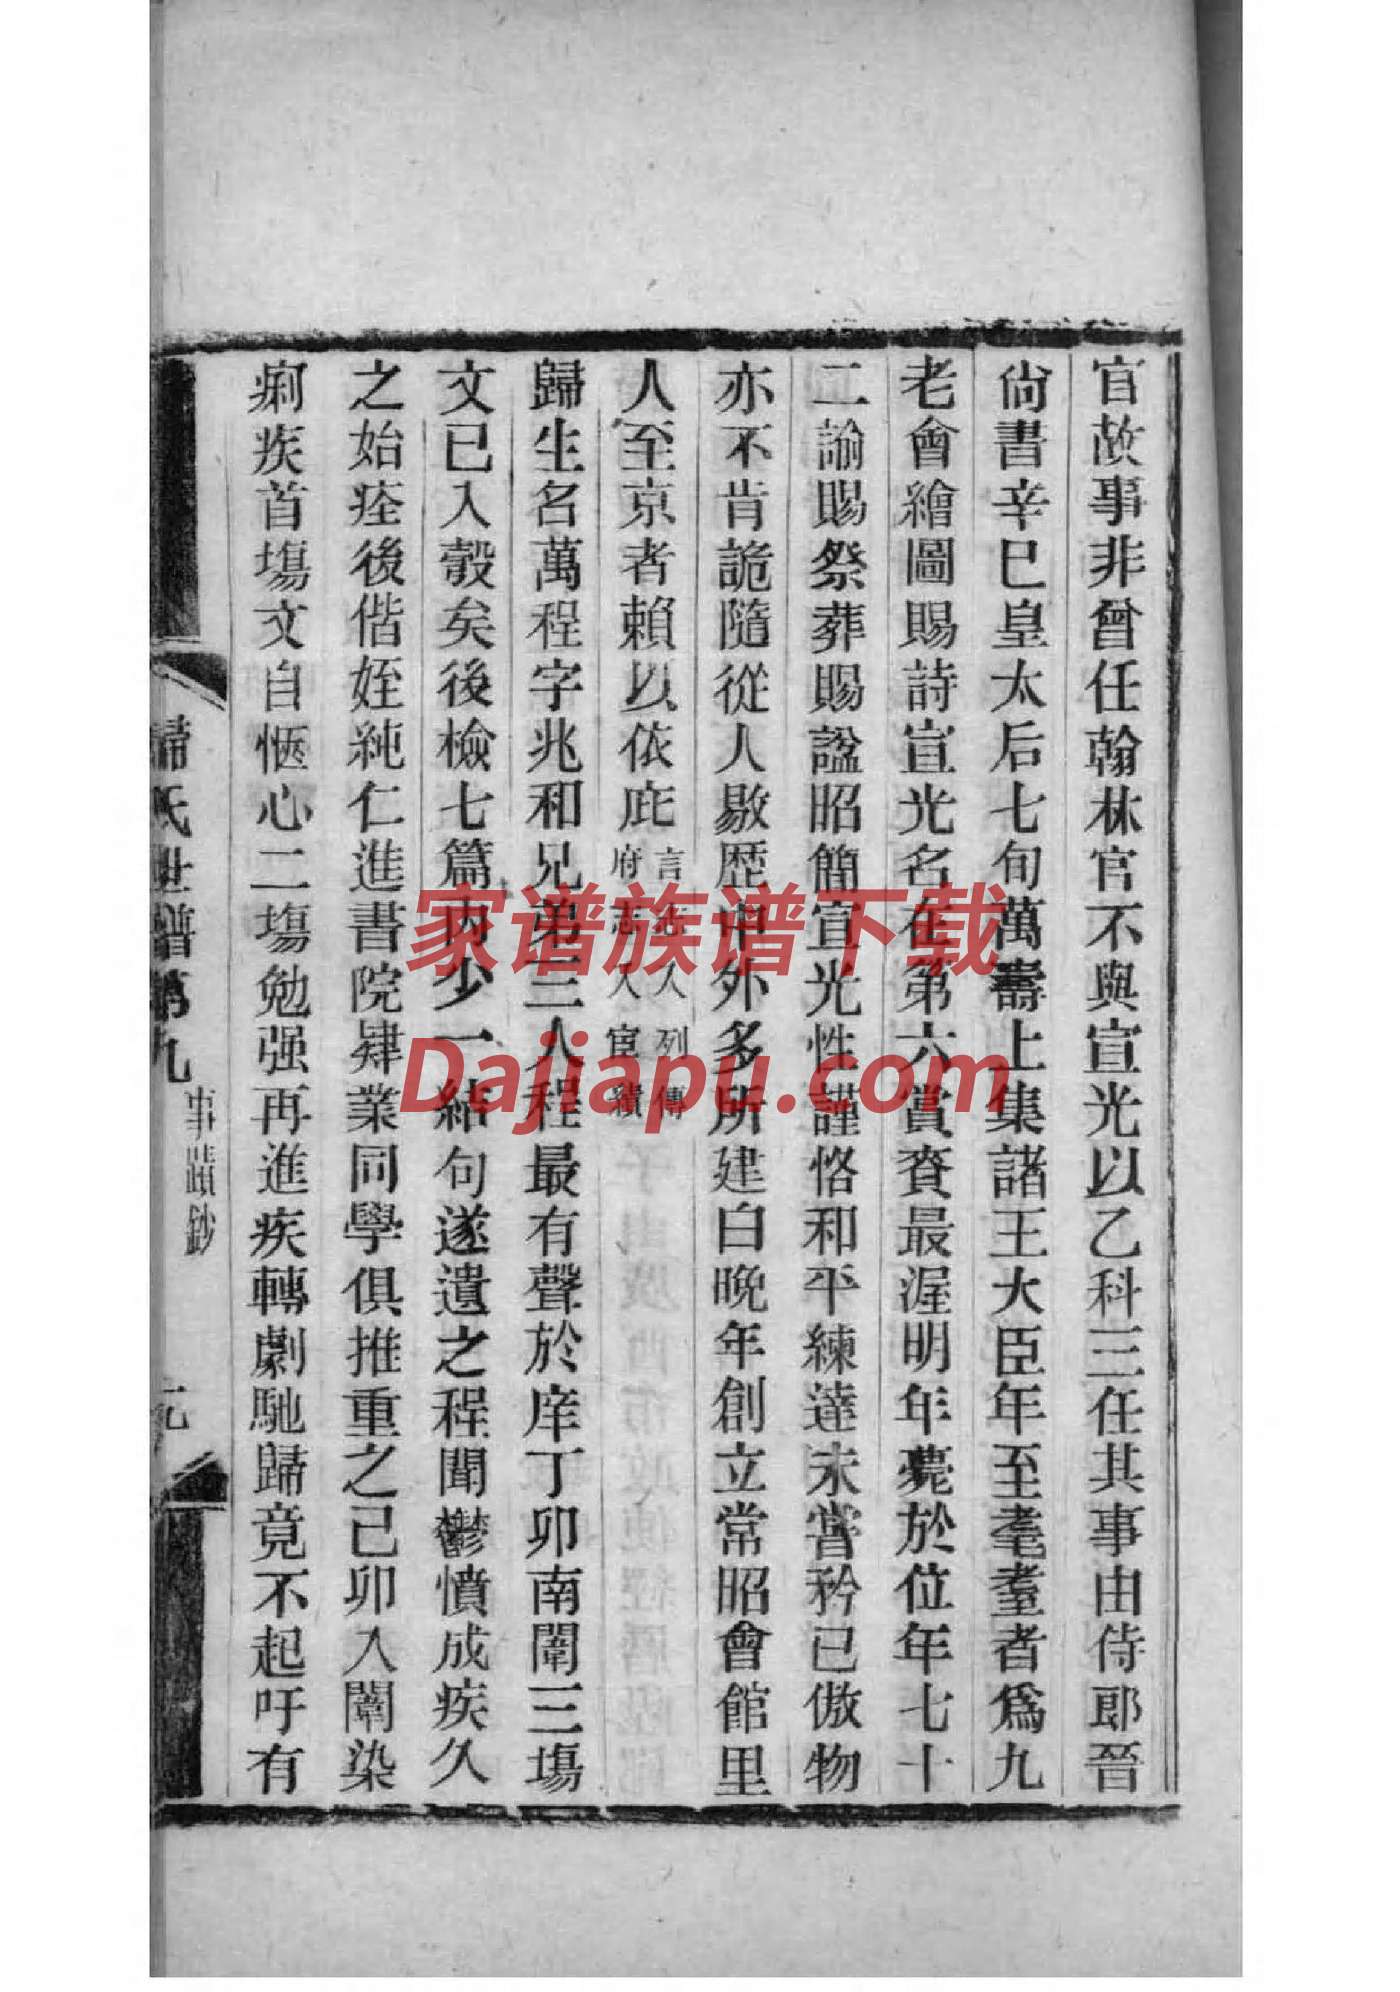 官故事非曾任翰林官不與宣光以乙科三任其事由侍郎晉
尚書辛巳皇太后七旬萬壽上集諸王大臣年至耄耋者爲九
老會繪圖賜詩宣光名在第六賞賚最渥明年薨於位年七十
二諭賜祭葬賜諡昭簡宣光性謹恪和平練達未嘗矜已傲物
亦不肯詭隨從人敭歷中外多所建白晚年創立常昭會館里
人至京者賴以依庇言志入列傳
府志入宦績
歸生名萬程字兆和兄弟三人程最有聲於庠丁卯南闈三塲
文已入彀矣後檢七篇內少一結句遂遺之程聞鬱憤成疾久
之始痊後偕姪純仁進書院肄業同學俱推重之己卯入闈染
痢疾首塲文自愜心二塲勉强再進疾轉劇馳歸竟不起吁有
歸氏世譜第九 事蹟鈔
家谱族谱下载
Dajiapu.com